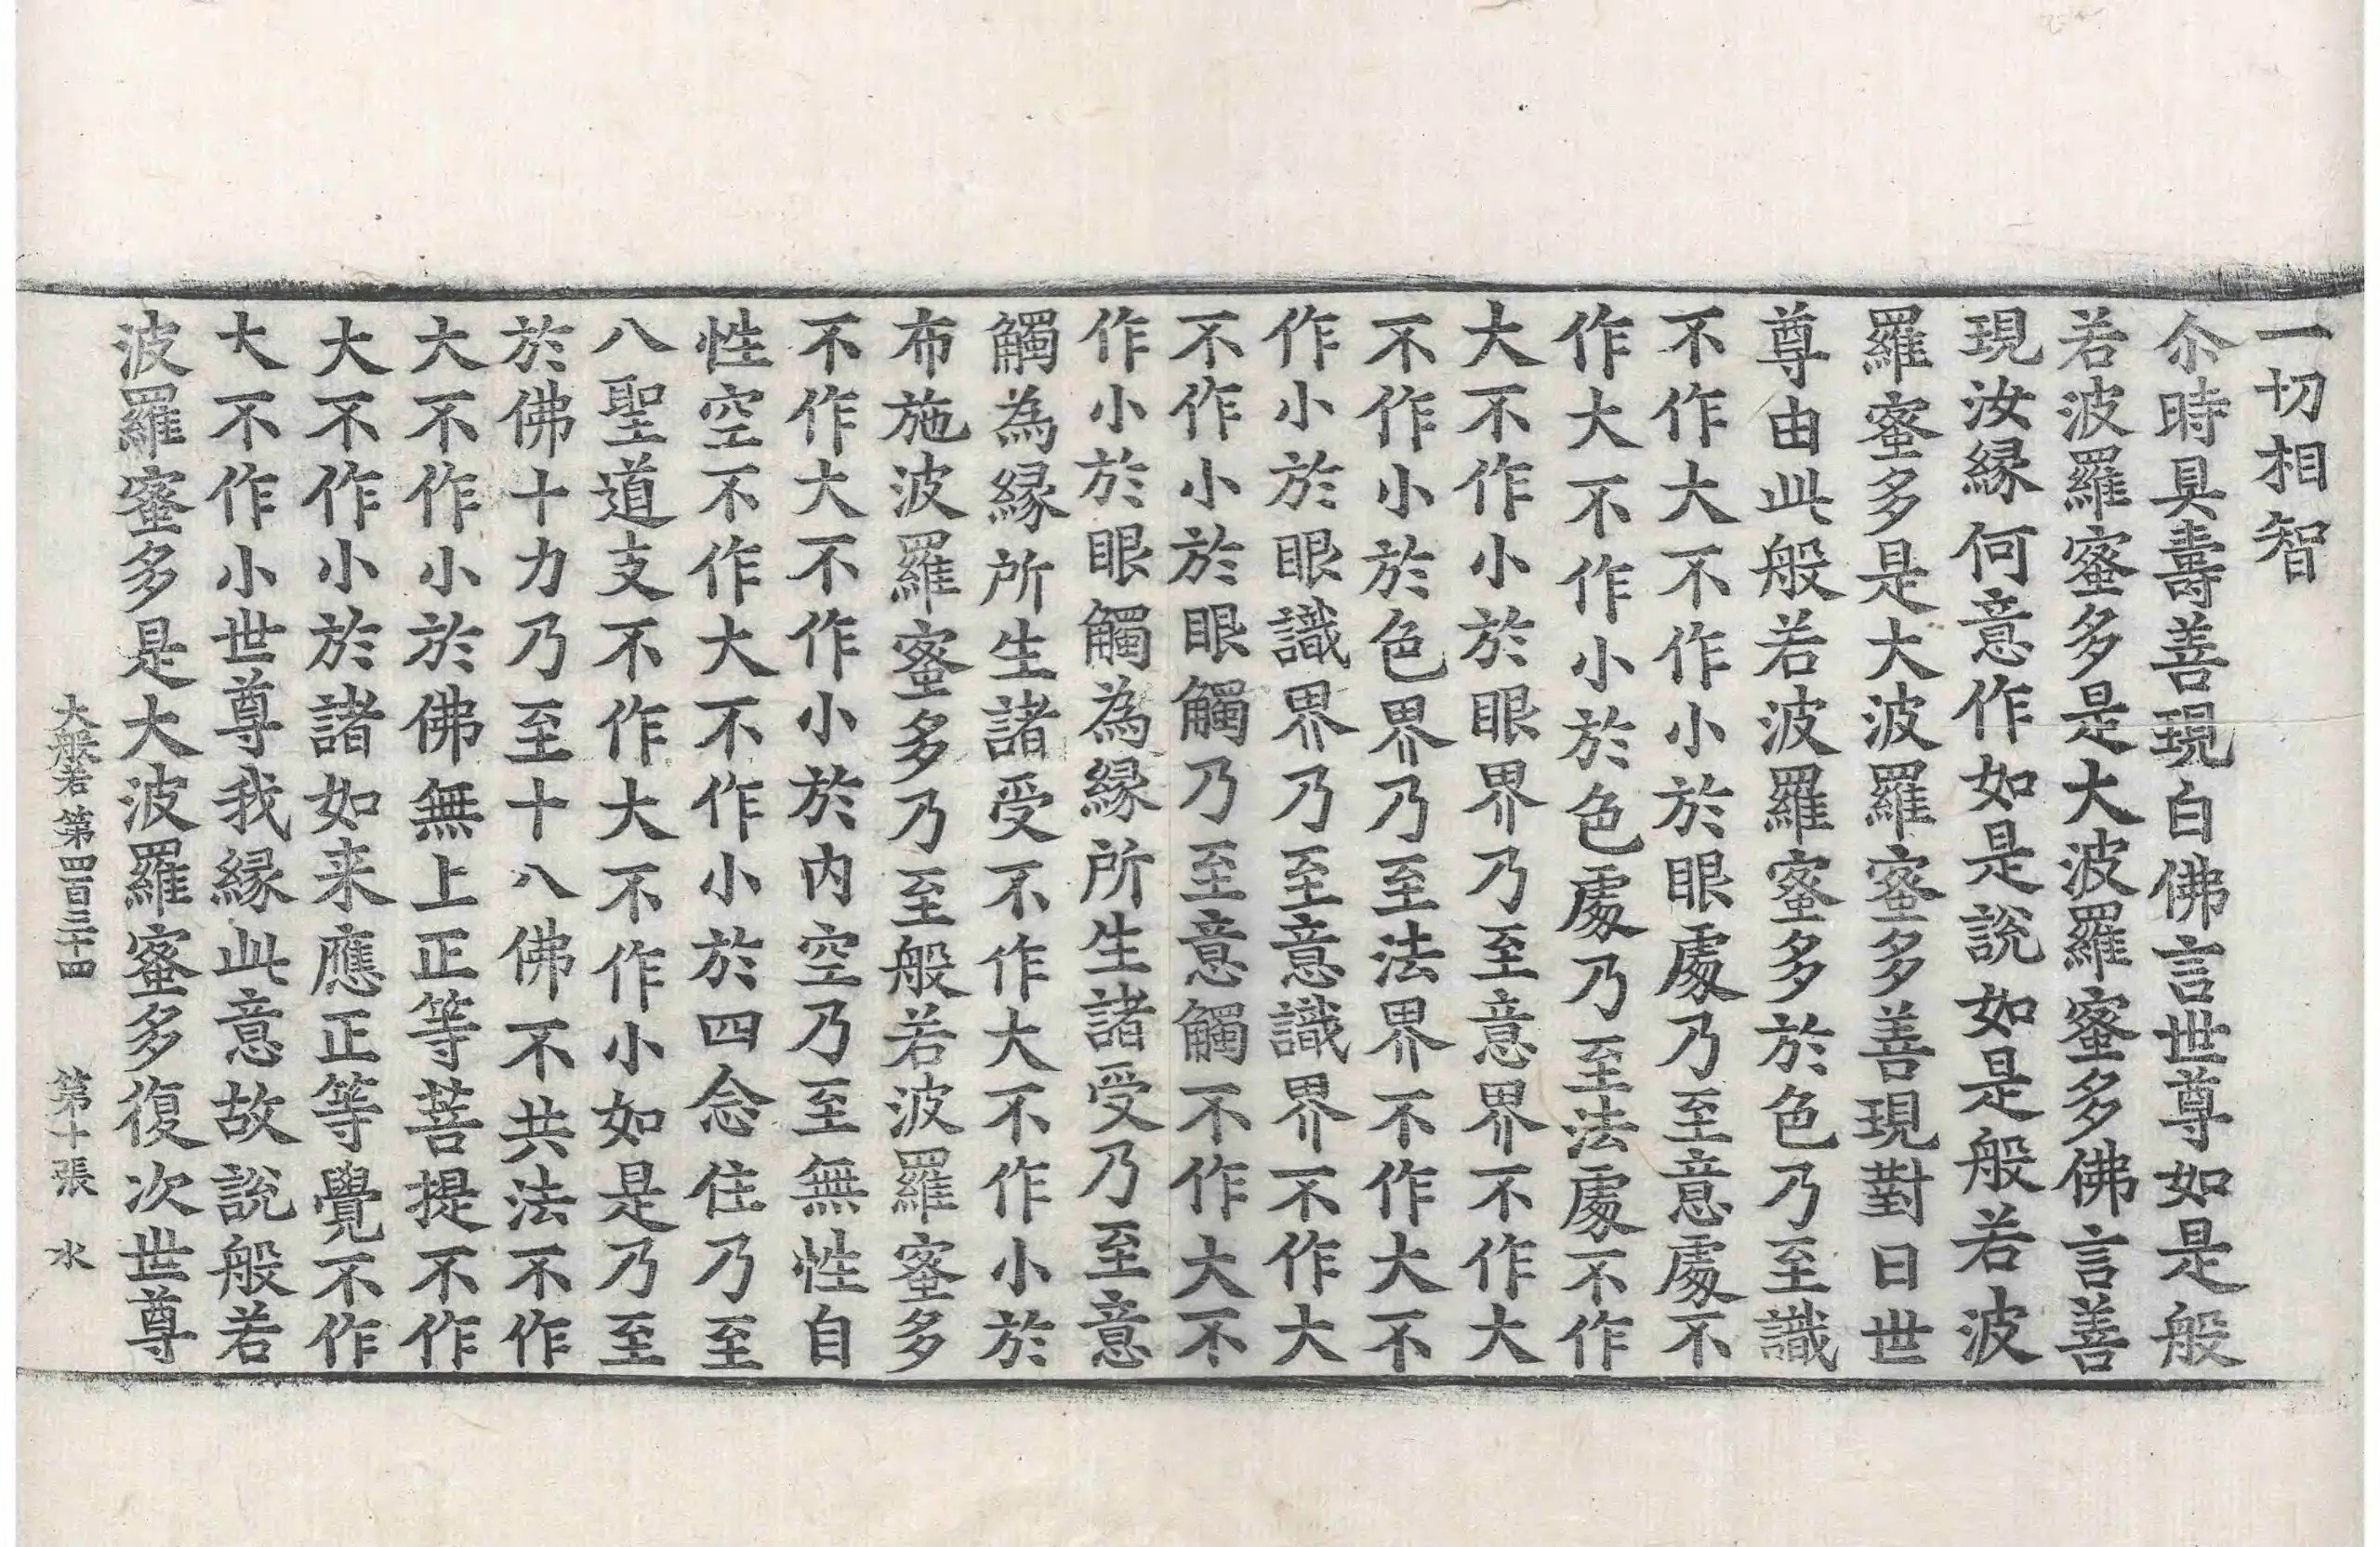 一切相智
尒時具壽善現白佛言世尊如是般
若波羅蜜多是大波羅蜜多佛言善
現汝縁何意作如是說如是般若波
羅蜜多是大波羅蜜多善現對曰世
尊由此般若波羅蜜多於色乃至識
不作大不作小於眼處乃至意處不
作大不作小於色處乃至法處不作
大不作小於眼界乃至意界不作大
不作小於色界乃至法界不作大不
作小於眼識界乃至意識界不作大
不作小於眼觸乃至意觸不作大不
作小於眼觸為縁所生諸受乃至意
觸為縁所生諸受不作大不作小於
布施波羅蜜多乃至般若波羅蜜多
不作大不作小於内空乃至無性自
性空不作大不作小於四念住乃至
八聖道支不作大不作小如是乃至
於佛十力乃至十八佛不共法不作
大不作小於佛無上正等菩提不作
大不作小於諸如来應正等覺不作
大不作小世尊我縁此意故說般若
波羅蜜多是大波羅蜜多復次世尊
大般若第四百三十四 第十張 水